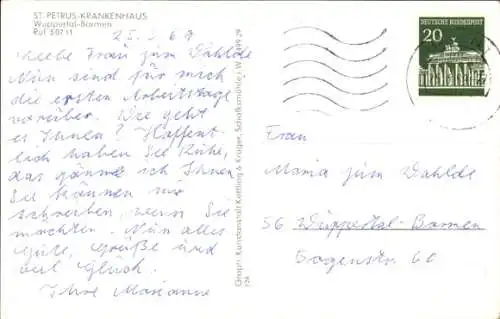 ST. PETRUS-KRANKENHAUS
Wuppertal-Barmen
Ruf 507 11
25.3.67
Liebe Frau zum Dahlde
Nun sind für mich
die ersten Arbeitstage
vorüber. Wie geht
es Ihnen? Hoffent-
lich haben Sie Ruhe,
das gönne ich Ihnen
Sie können mir
schreiben, wenn Sie
möchten. Nun alles
Gute, Grüße und
viel Glück.
Ihre Marianne
Graph. Kunstanstalt Kettling & Krüger, Schalksmühle i.W.
DEUTSCHE BUNDESPOST
20
Frau
Maria zum Dahlde
56 Wuppertal-Barmen
60